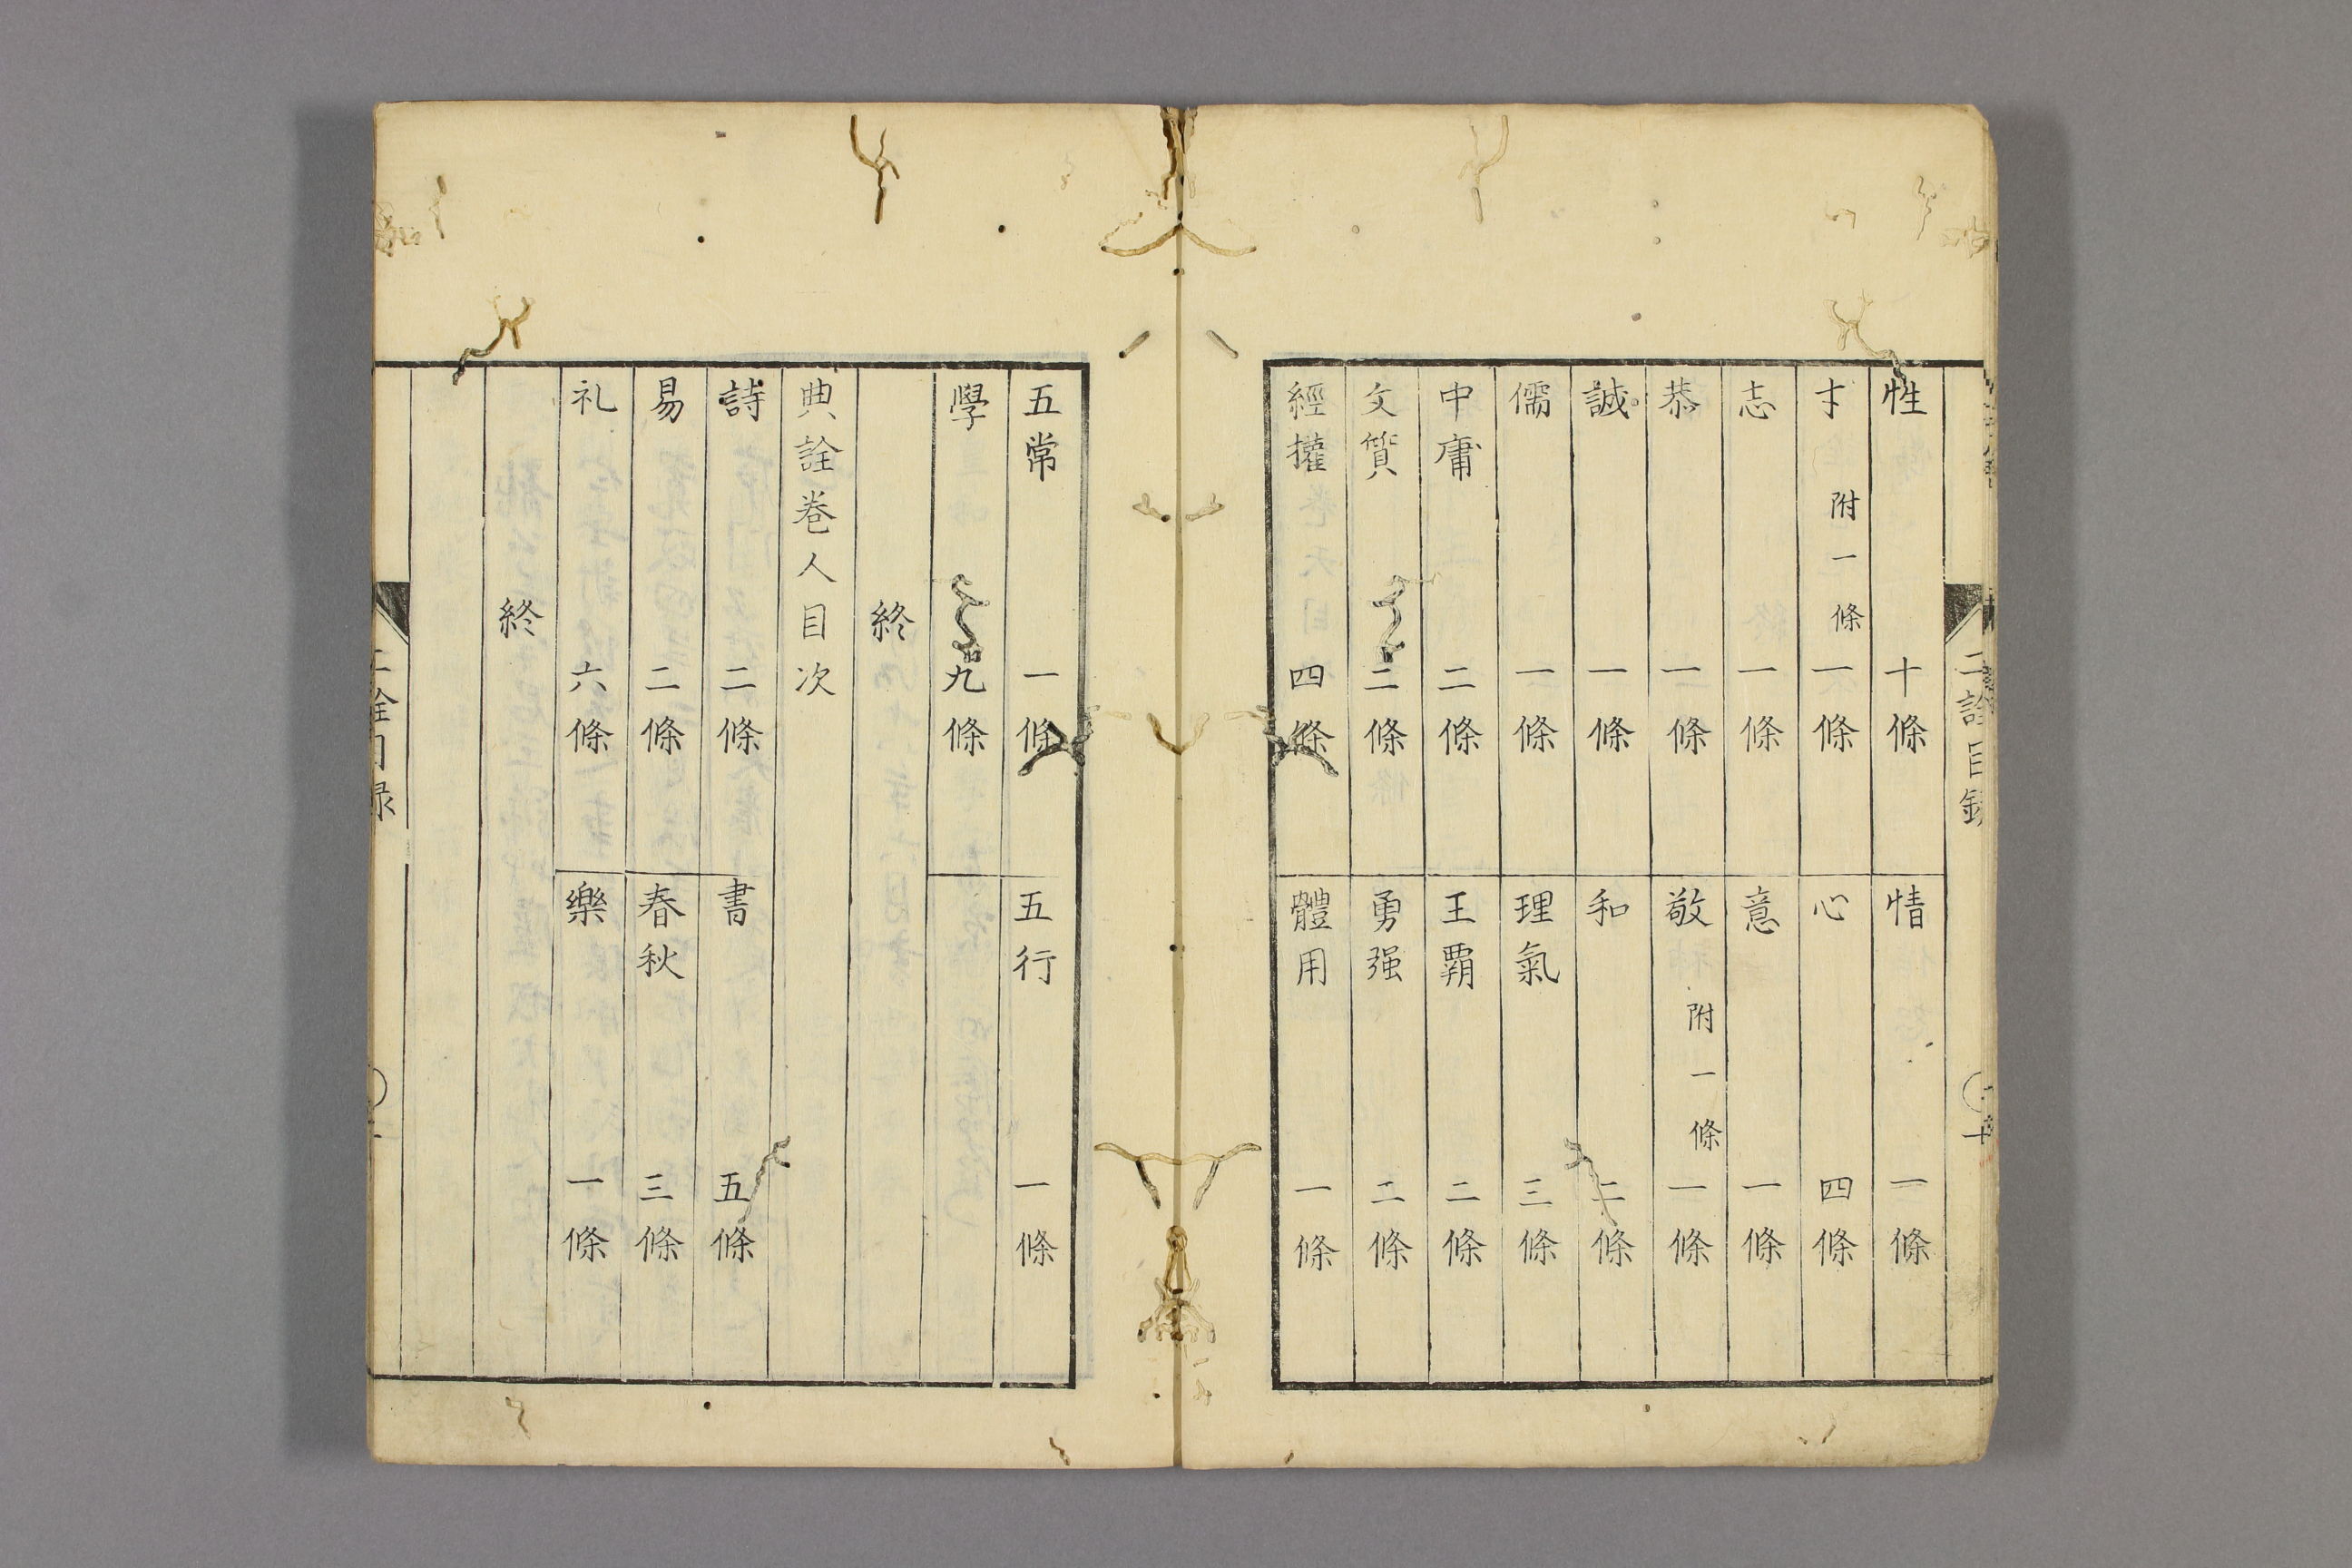 二詮目録
性 十條 情 一條
才 附一條 一條 心 四條
志 一條 意 一條
恭 一條 敬 附一條 一條
誠 一條 和 二條
儒 一條 理氣 三條
中庸 二條 王覇 二條
文質 二條 勇强 二條
經權 四條 體用 一條
五常 一條 五行 一條
學 九條
終
典詮巻人目次
詩 二條 書 五條
易 二條 春秋 三條
礼 六條 樂 一條
終